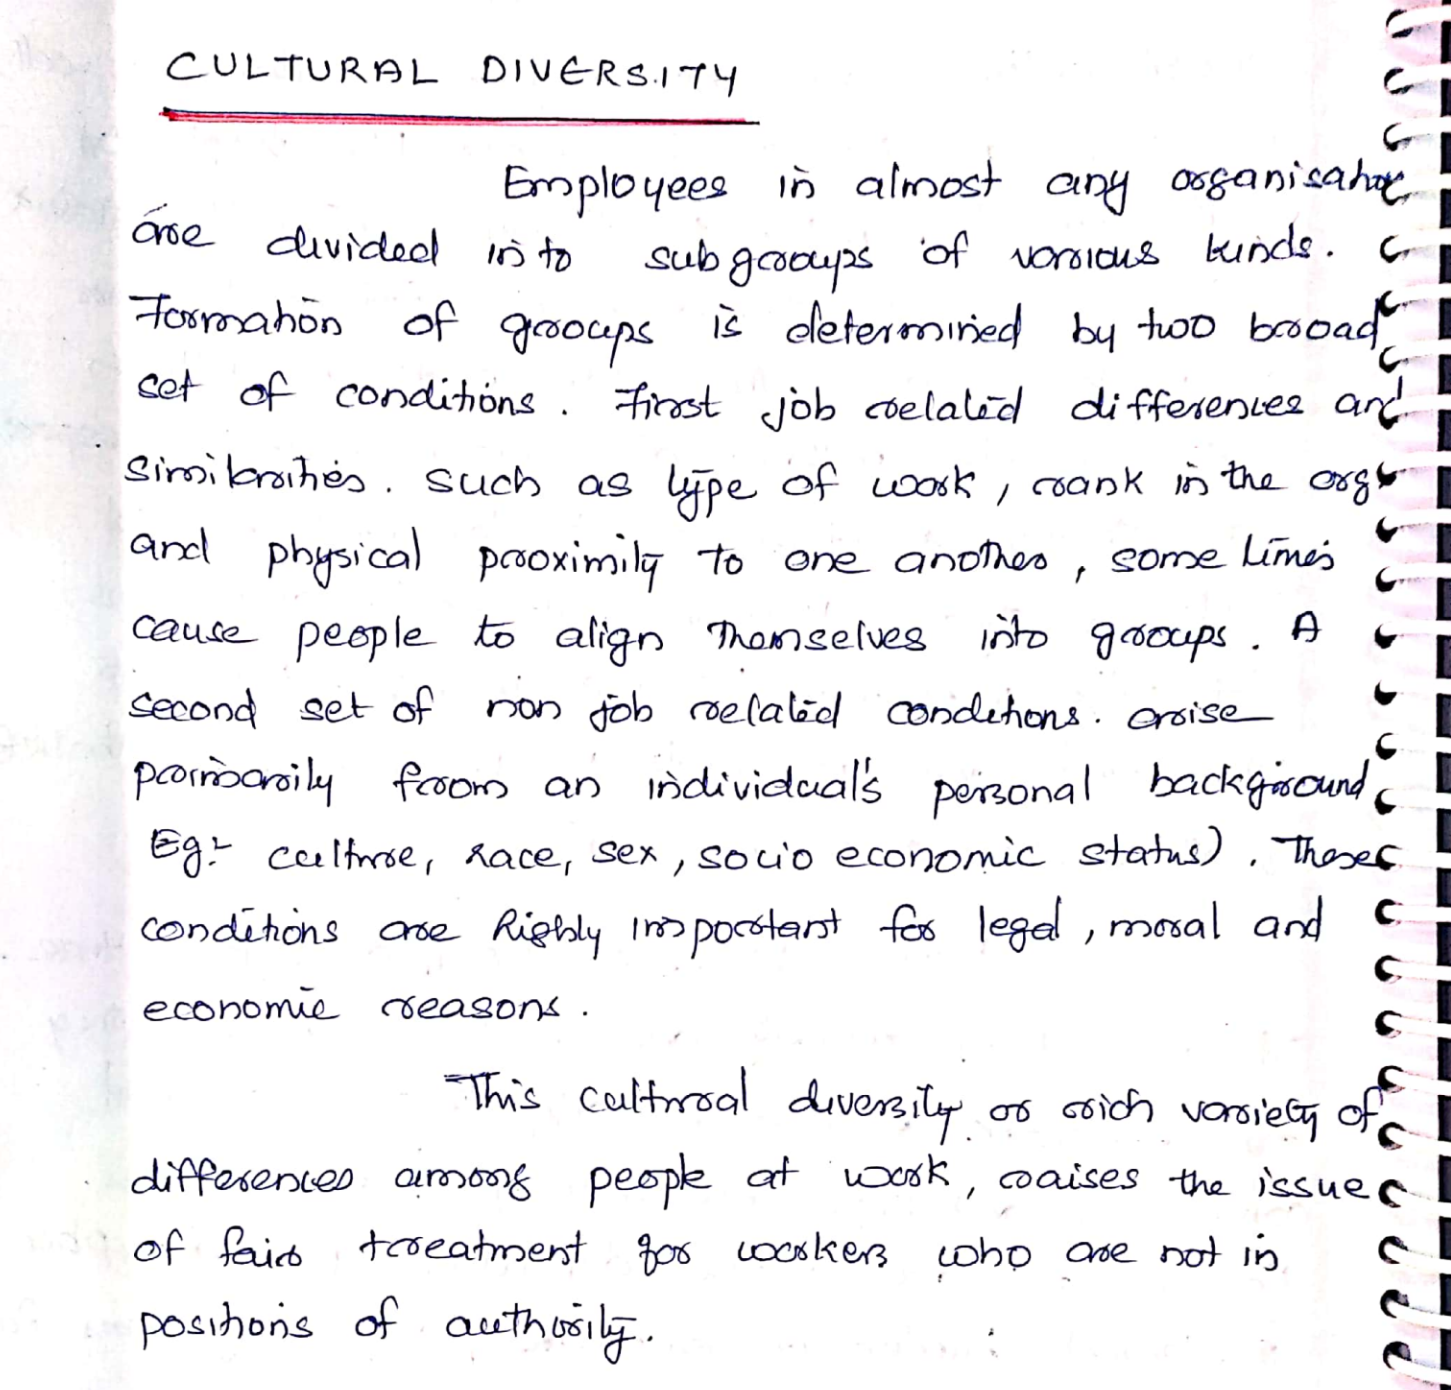 CULTURAL DIVERSITY
Employees in almost any organisation
are divided into subgroups of various kinds.
Formation of groups is determined by two broad
set of conditions. First job related differences and
similarities. such as type of work, rank in the org
and physical proximity to one another, some times
cause people to align themselves into groups. A
second set of non job related conditions. arise
primarily from an individual's personal background
Eg:- culture, race, sex, socio economic status). These
conditions are highly important for legal, moral and
economic reasons.
This cultural diversity or rich variety of
differences among people at work, raises the issue
of fair treatment for workers who are not in
positions of authority.